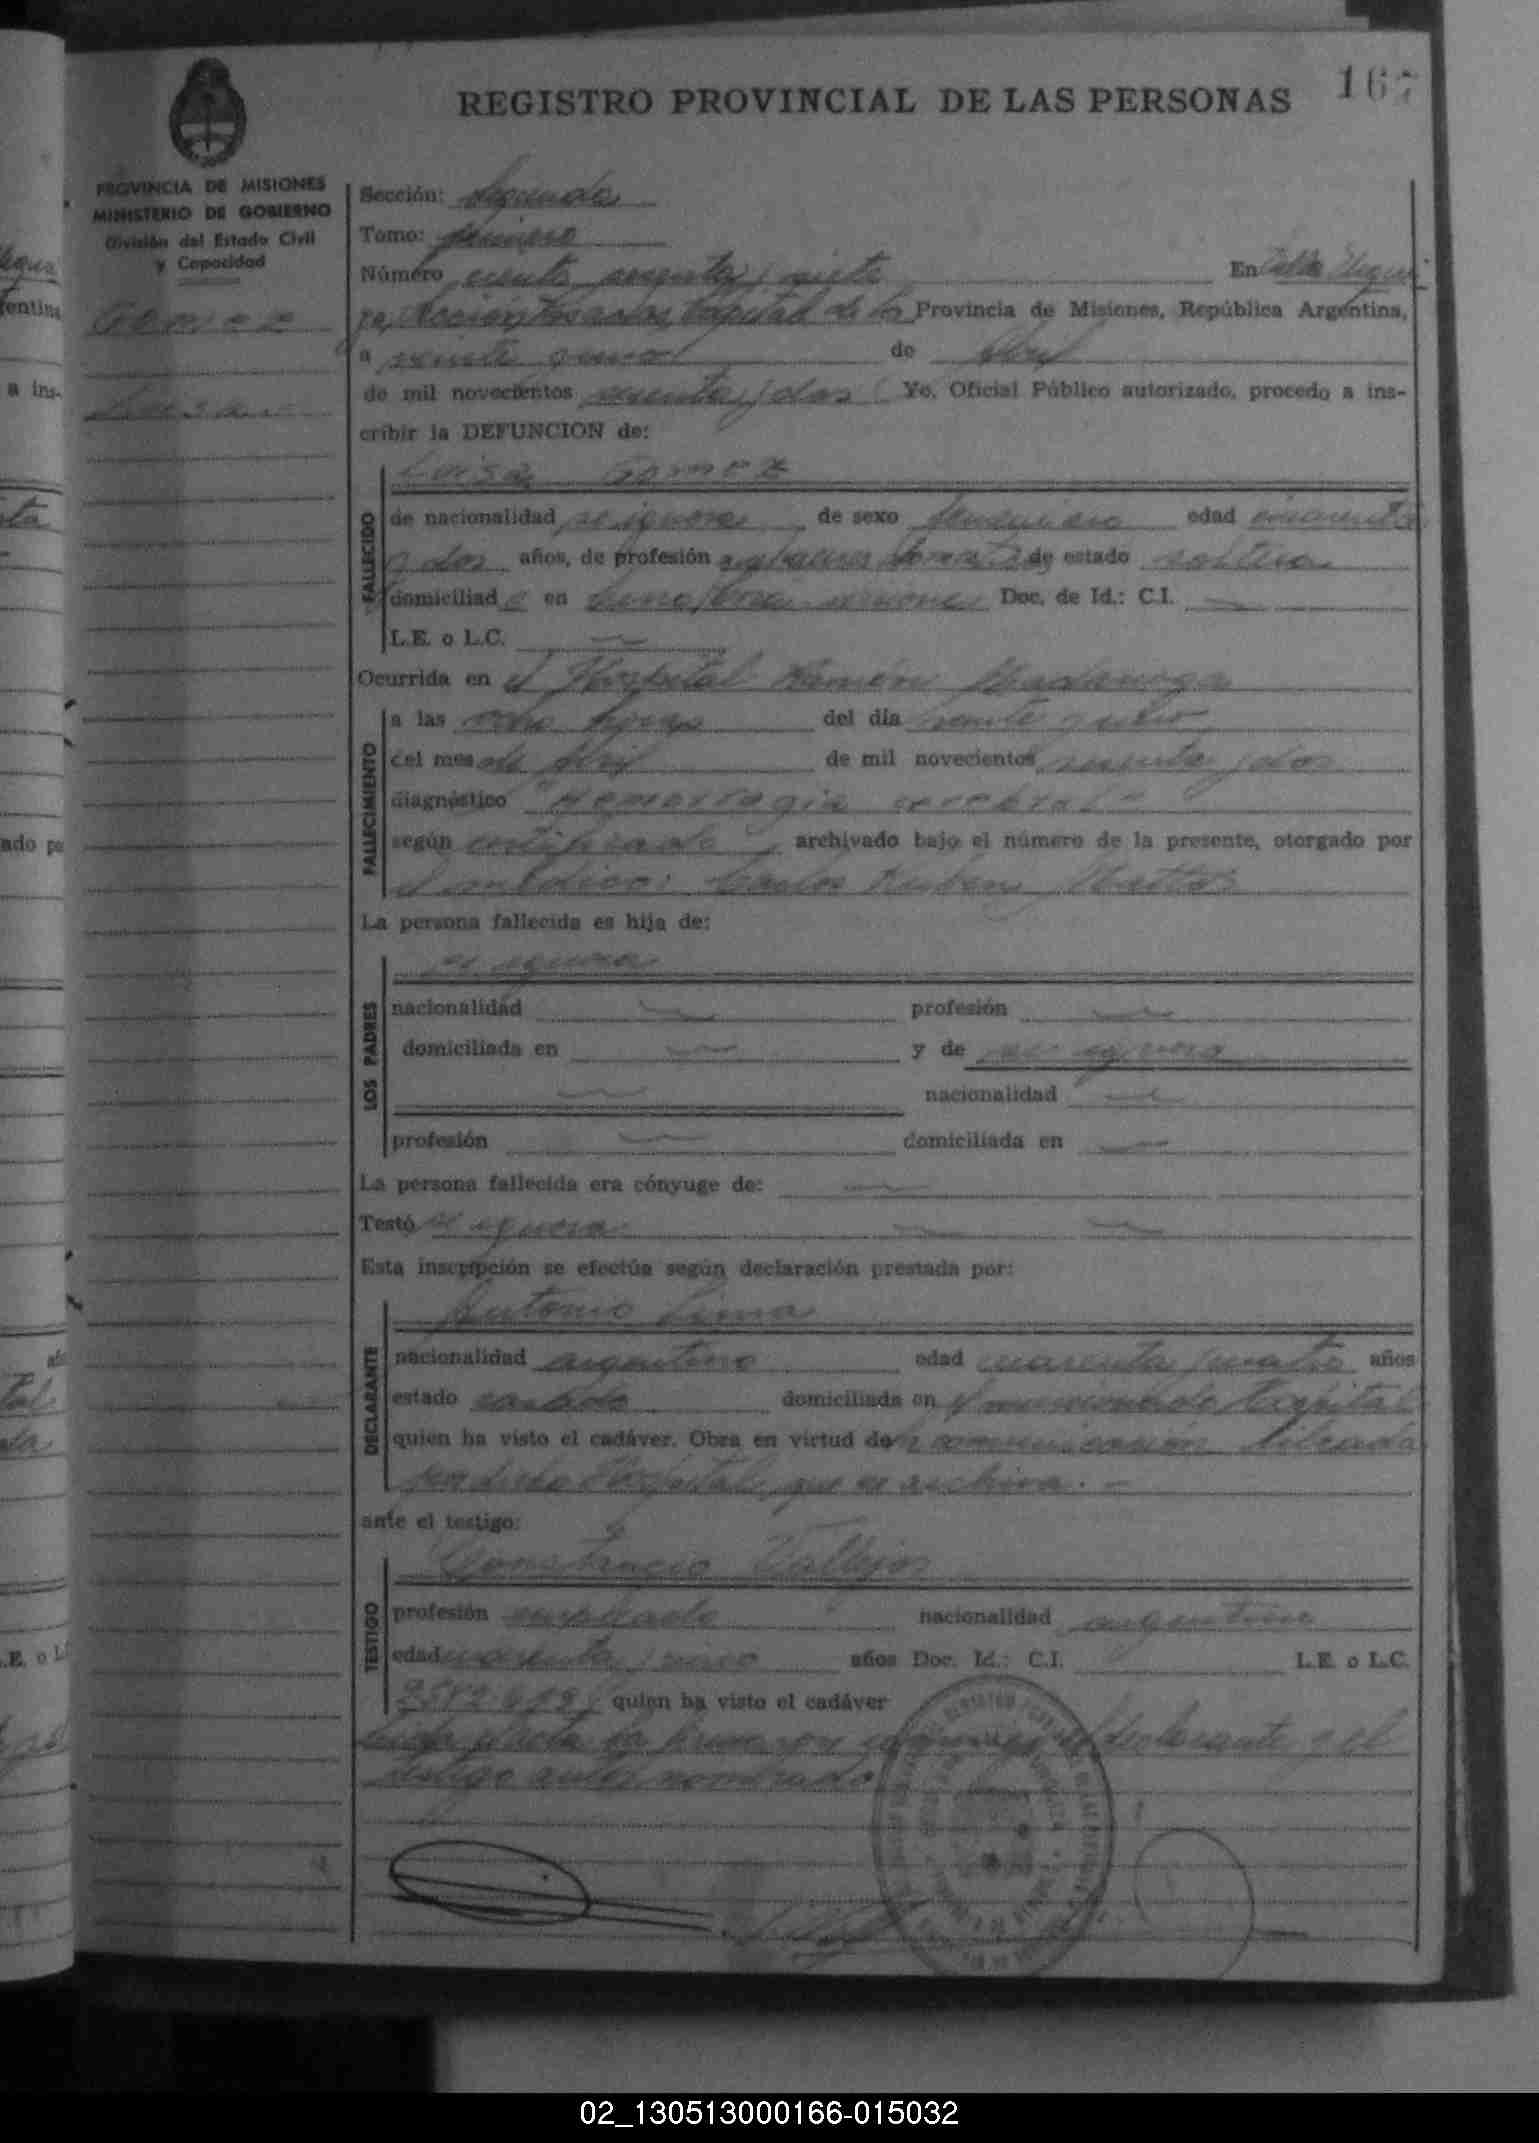 167
REGISTRO PROVINCIAL DE LAS PERSONAS
PROVINCIA DE MISIONES
MINISTERIO DE GOBIERNO
División del Estado Civil
y Capacidad
Gomez
Luisa
Sección: Segunda
Tomo: primero
Número ciento sesenta y siete En Villa Urqui
za, Sección Posadas, Capital de la Provincia de Misiones, República Argentina,
a veinte de Abril
de mil novecientos y dos Yo, Oficial Público autorizado, procedo a ins-
cribir la DEFUNCION de:
Luisa Gomez
FALLECIDO
de nacionalidad se ignora de sexo femenino edad
y dos años, de profesión de estado soltera
domiciliada en Doc. de Id.: C.I.
L.E. o L.C.
Ocurrida en el Hospital Ramón Madariaga
FALLECIMIENTO
a las ocho horas del día veinte
del mes de Abril de mil novecientos y dos
diagnóstico "Hemorragia cerebral"
según certificado archivado bajo el número de la presente, otorgado por
el médico: Carlos Rubén
La persona fallecida es hija de:
LOS PADRES
se ignora
nacionalidad profesión
domiciliada en y de se ignora
nacionalidad
profesión domiciliada en
La persona fallecida era cónyuge de:
Testó se ignora
Esta inscripción se efectúa según declaración prestada por:
DECLARANTE
Antonio Lima
nacionalidad argentino edad cuarenta y cuatro años
estado casado domiciliada en el mencionado Hospital
quien ha visto el cadáver. Obra en virtud de la comunicación librada
por dicho Hospital que se archiva. -
ante el testigo:
TESTIGO
Constancio Vallejos
profesión empleado nacionalidad argentina
edad cuarenta y años Doc. Id.: C.I. L.E. o L.C.
quien ha visto el cadáver
Leída el acta la firman conmigo el declarante y el
testigo antes nombrado
02_130513000166-015032